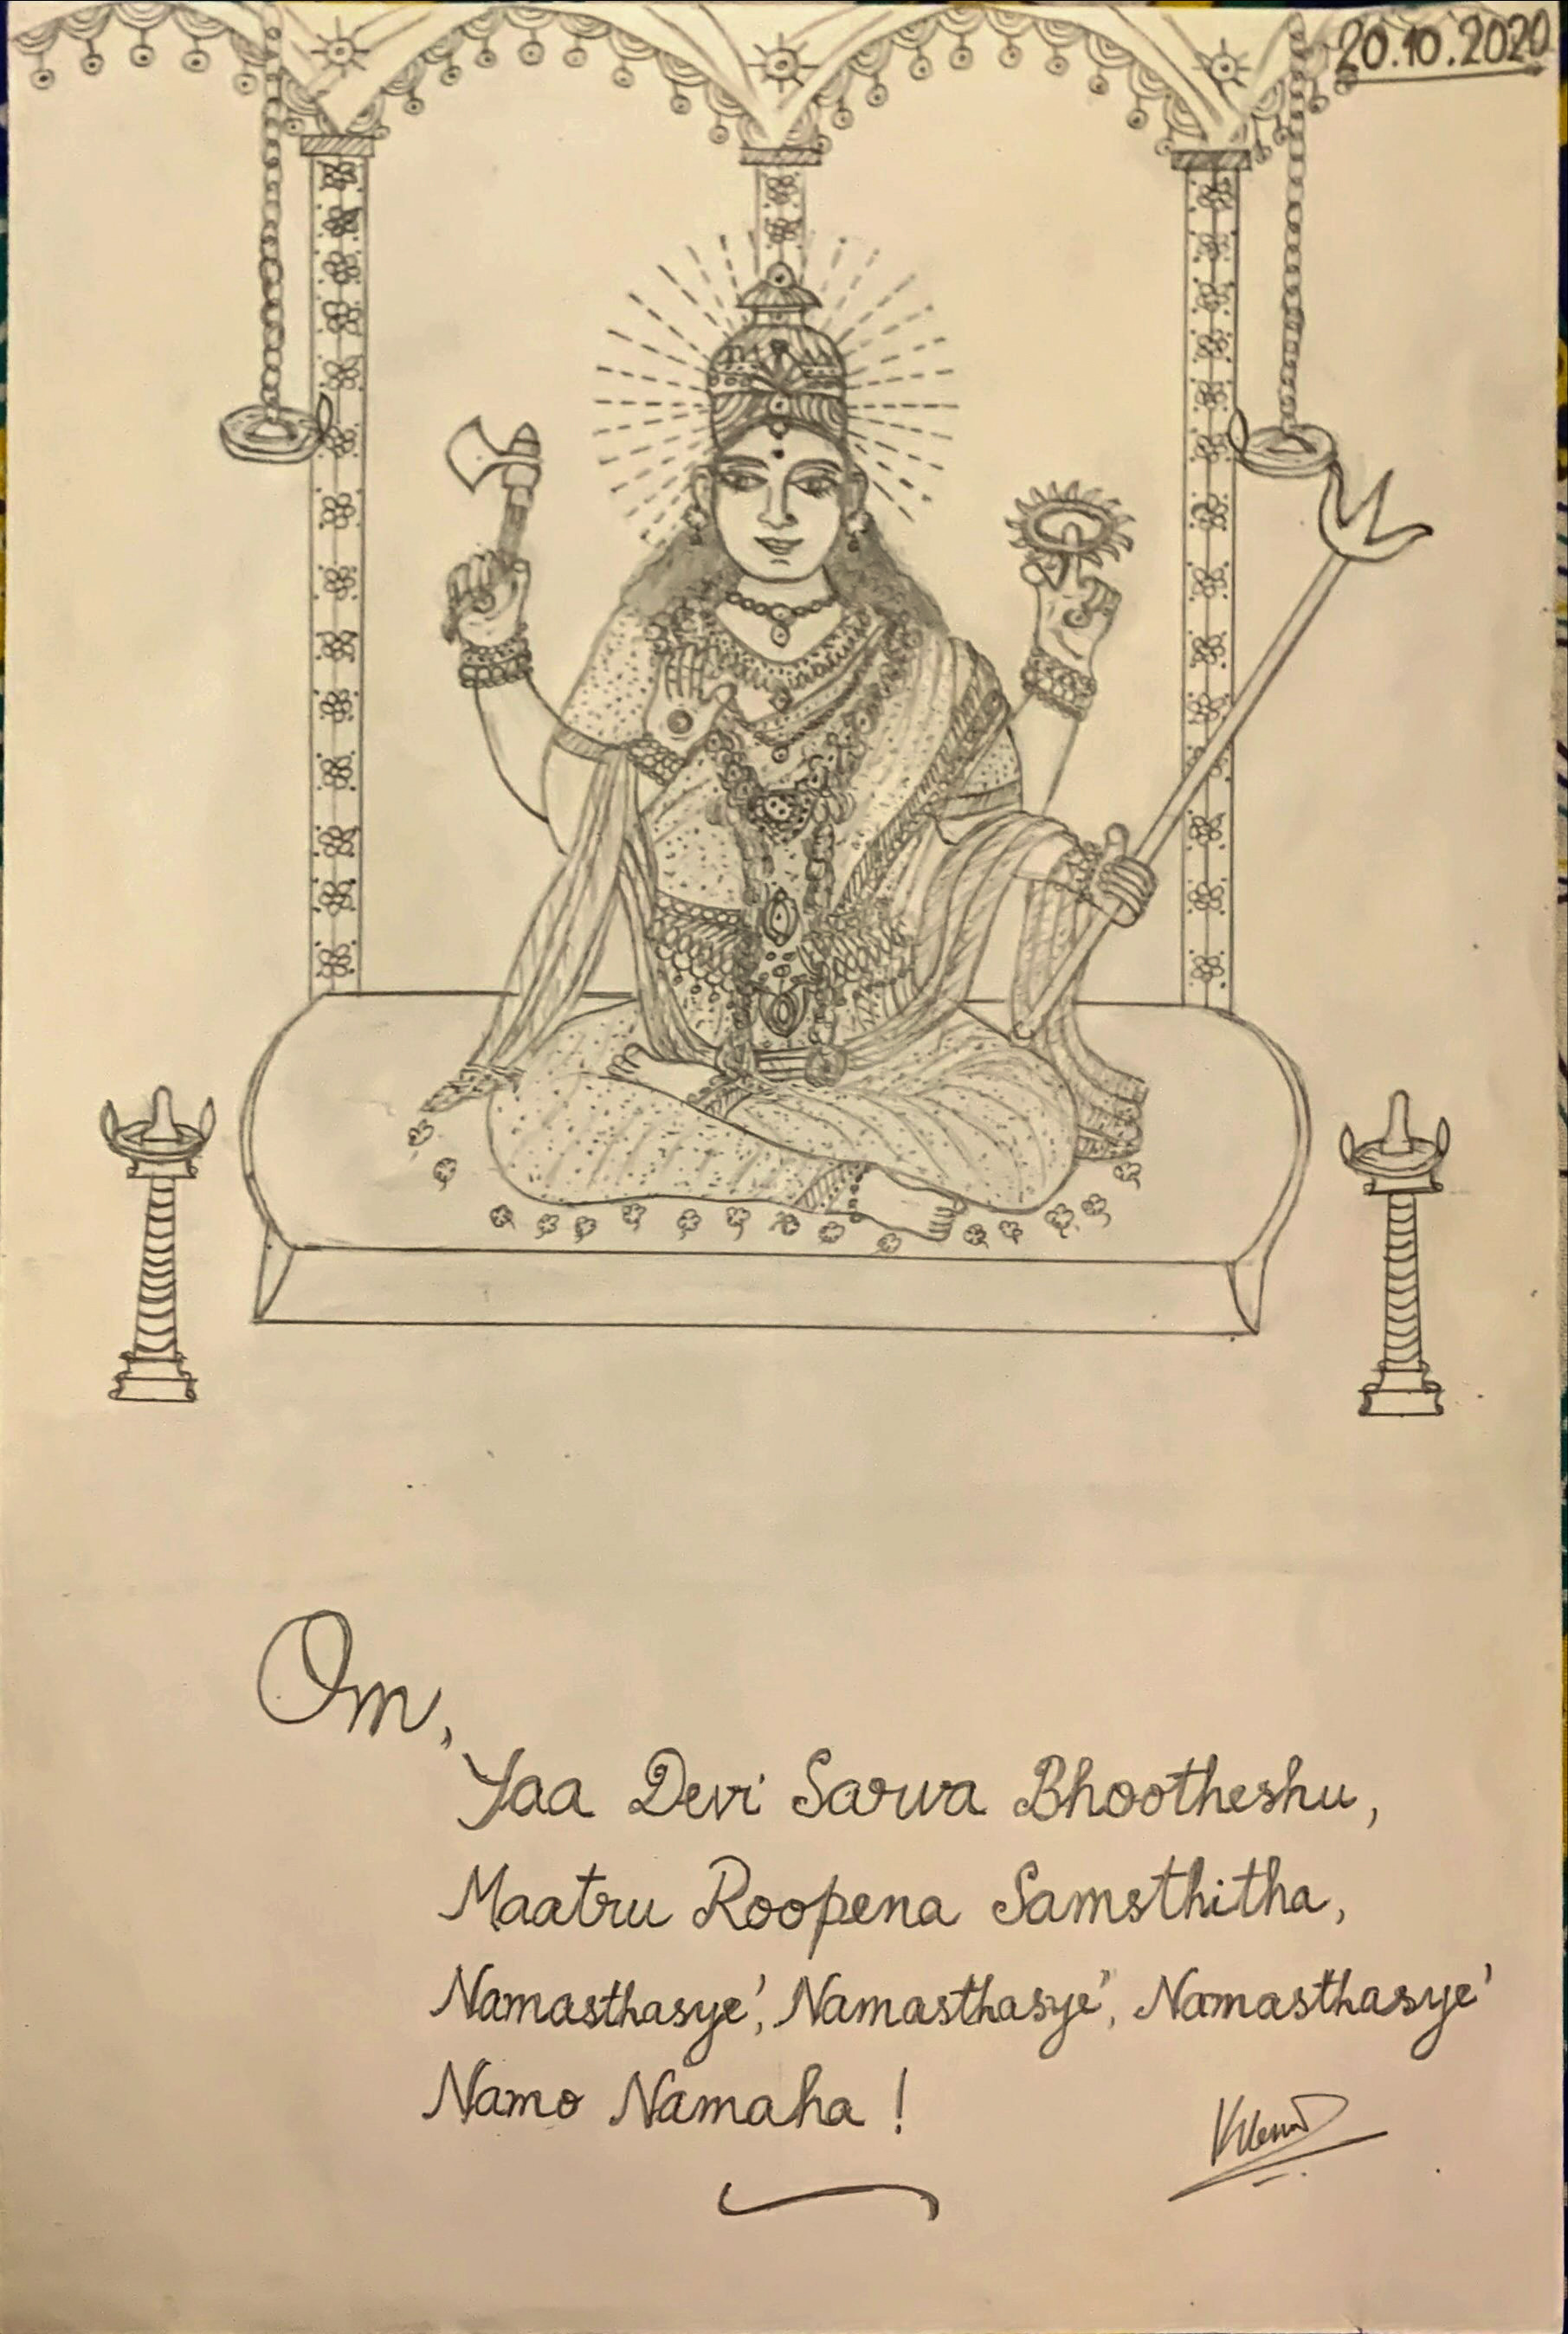 20.10.2020
Om,
Yaa Devi Sarva Bhootheshu,
Maatru Roopena Samsthitha,
Namasthasye', Namasthasye', Namasthasye'
Namo Namaha !